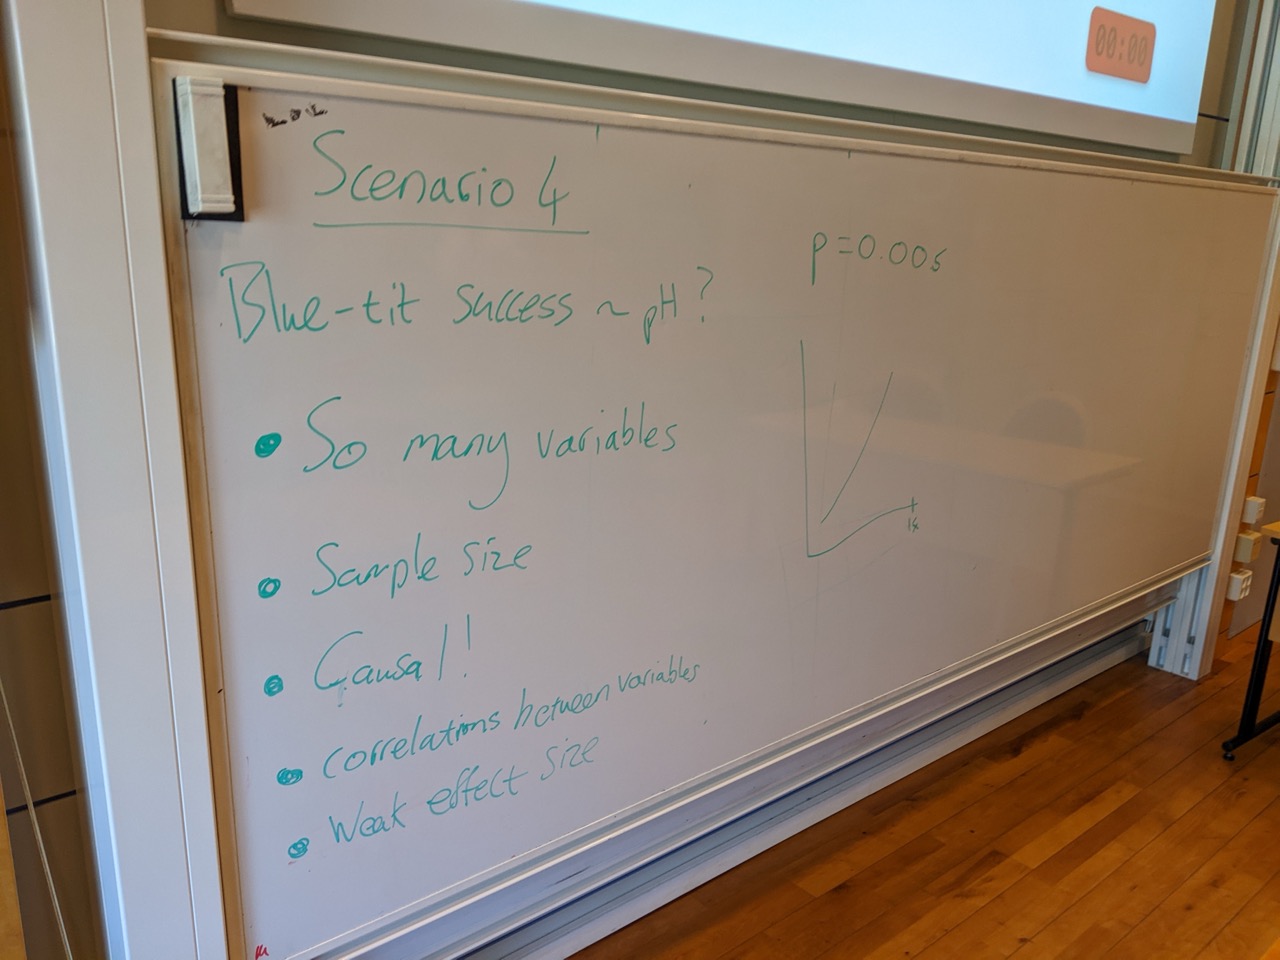 00:00
Scenario 4
Blue-tit success ~ pH?
• So many variables
• Sample size
• Causal!
• correlations between variables
• Weak effect size
p=0.005